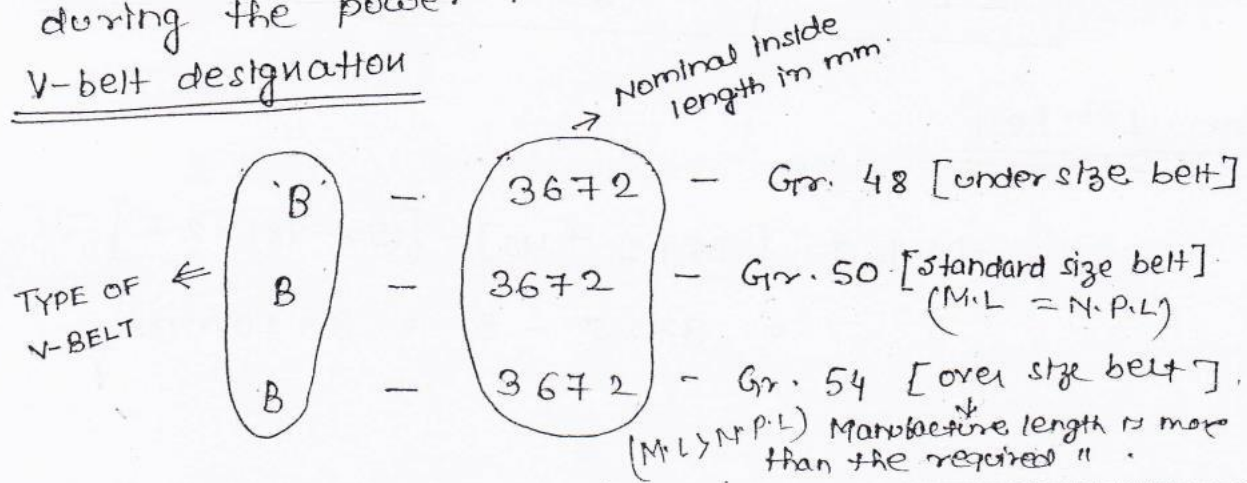 during the
V-belt designation
Nominal inside
length in mm.
'B' - 3672 - Gr. 48 [under size belt]
TYPE OF
V-BELT
B - 3672 - Gr. 50 [standard size belt].
(M.L = N.P.L)
B - 3672 - Gr. 54 [over size belt].
(M.L > N.P.L) Manufacture length is more
than the required " .